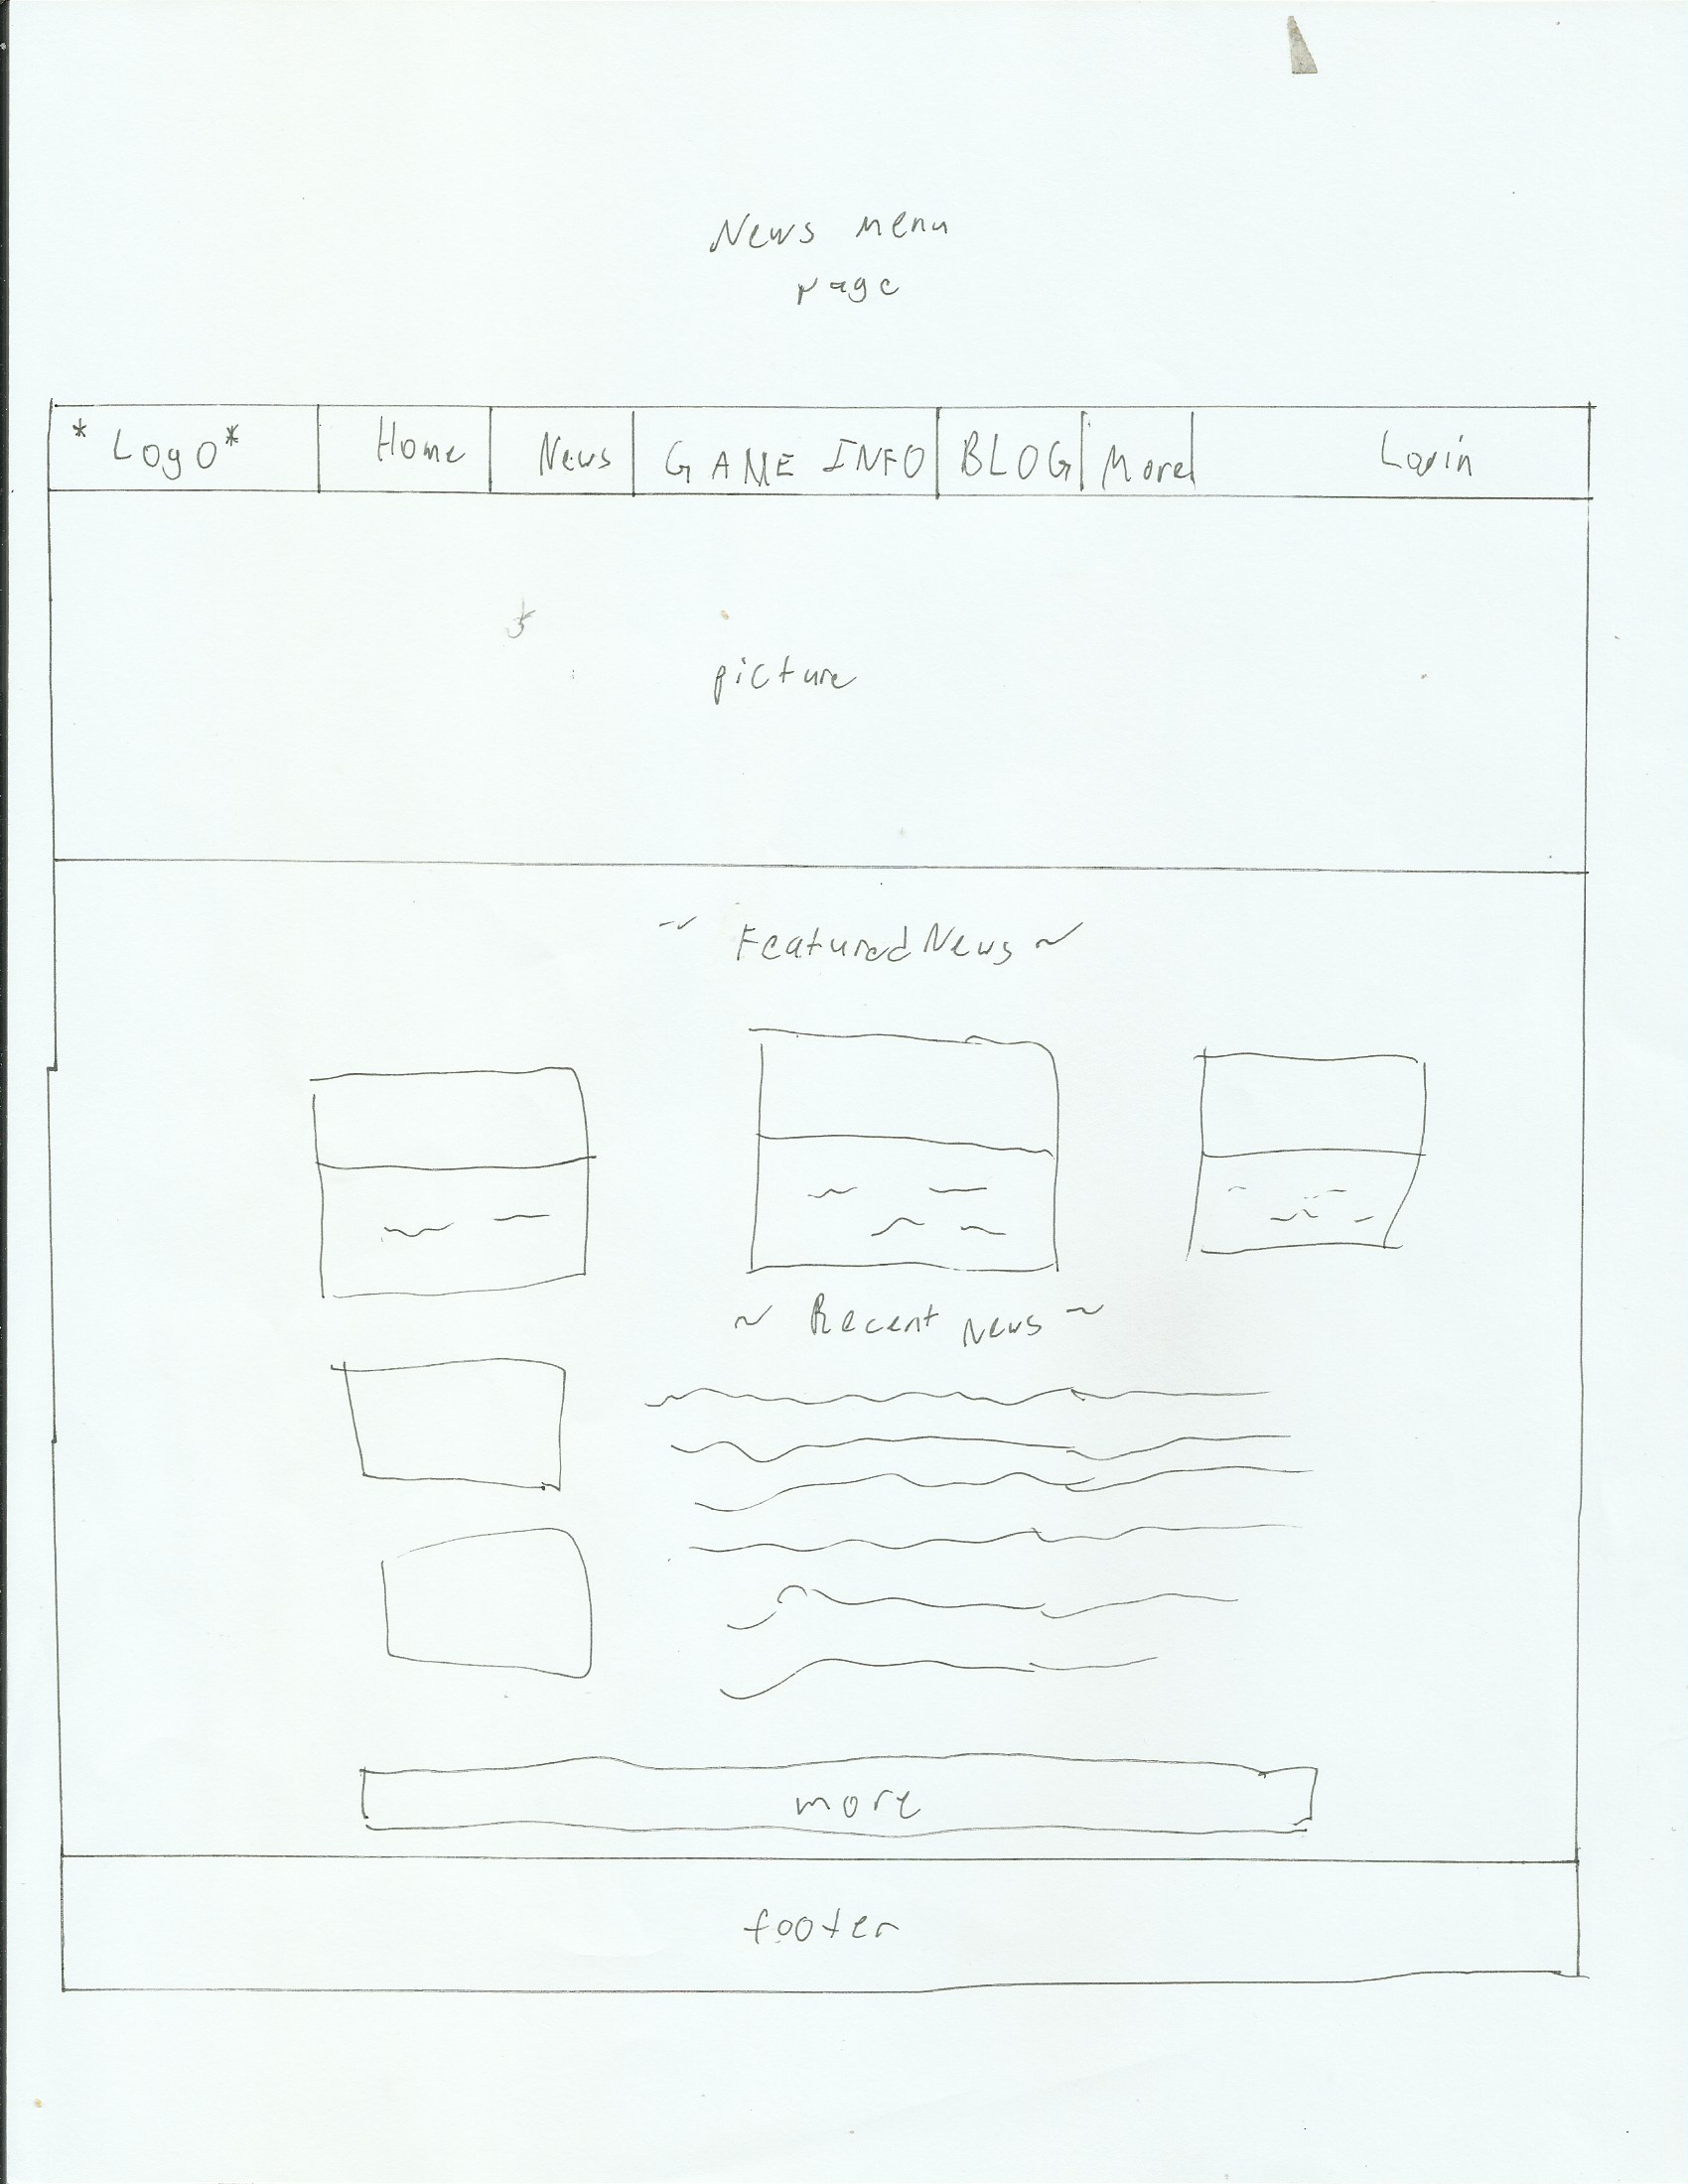 News menu
page
* Logo* Home News GAME INFO BLOG More Login
picture
~ Featured News ~
~ Recent News ~
more
footer